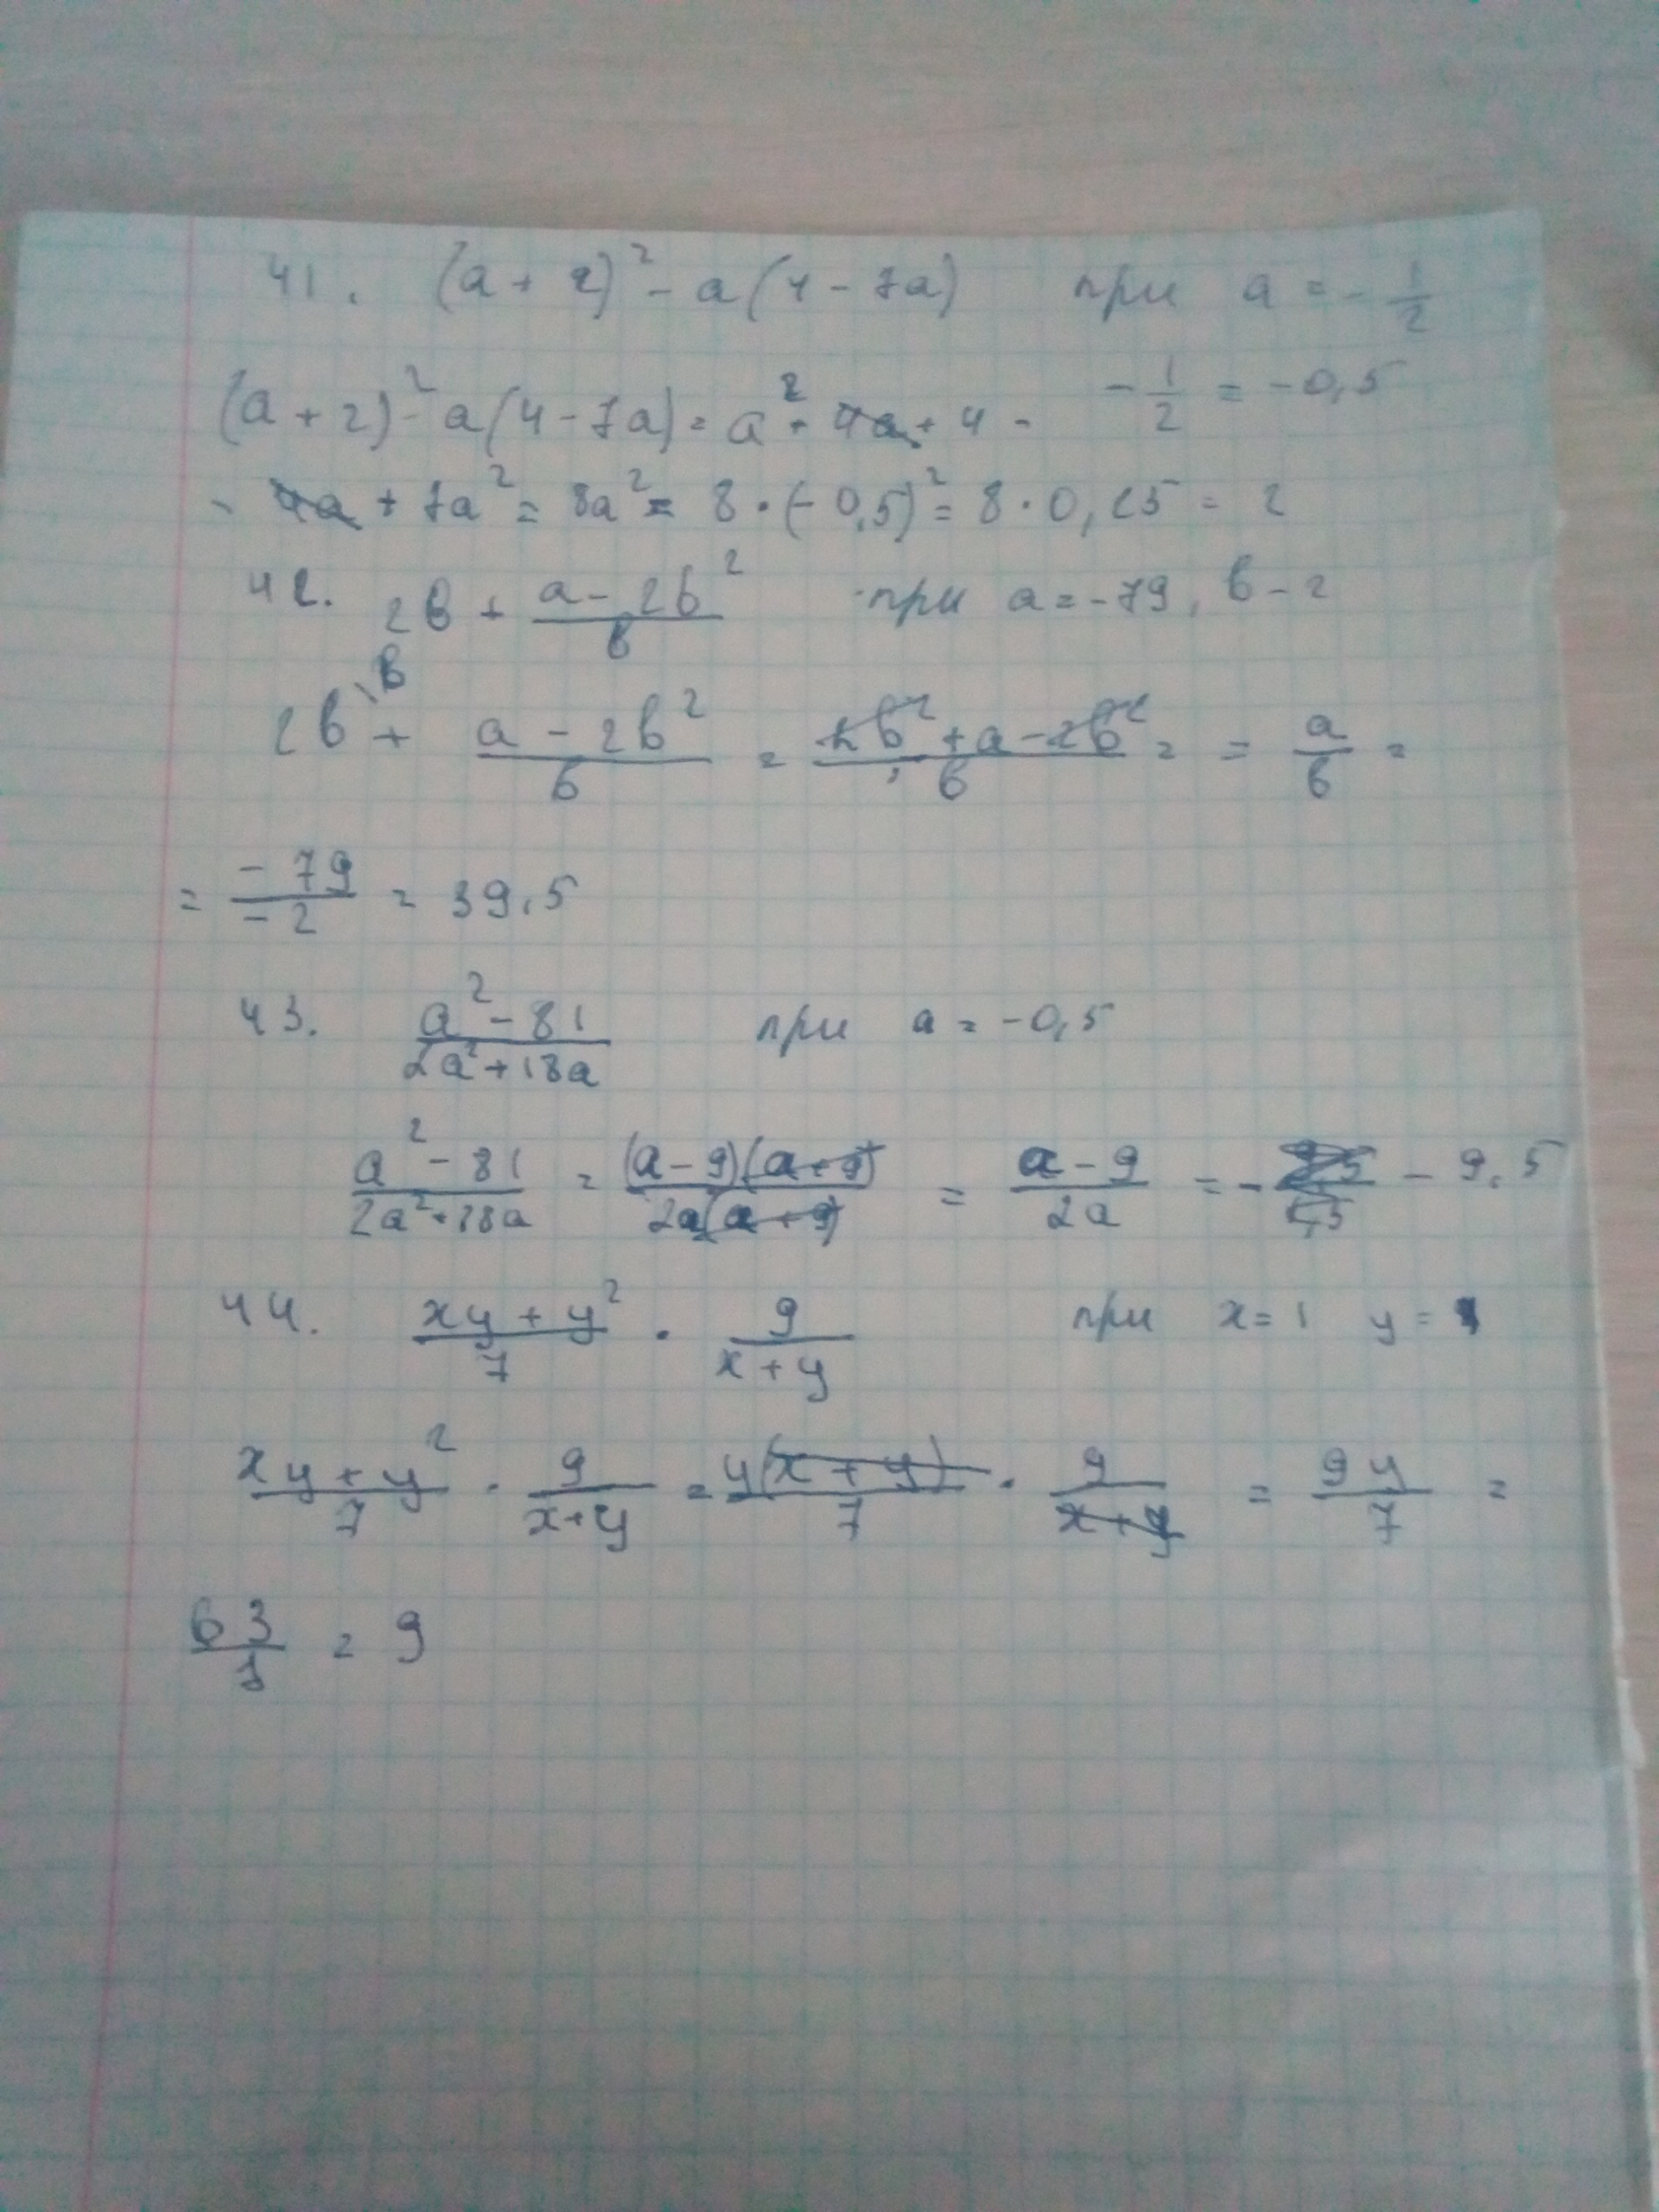 41. (a + 2)² - a(4 - 7a) при a = - 1/2
(a + 2)² - a(4 - 7a) = a² + 4a + 4 - - 1/2 = -0,5
- 4a + 7a² = 8a² = 8 · (-0,5)² = 8 · 0,25 = 2
42. 2b + (a - 2b²)/b при a = -79, b - 2
2b\b + (a - 2b²)/b = (2b² + a - 2b²)/b = = a/b =
= -79/-2 = 39,5
43. (a² - 81)/(2a² + 18a) при a = -0,5
(a² - 81)/(2a² + 18a) = ((a - 9)(a + 9))/(2a(a + 9)) = (a - 9)/2a = - - 9,5
44. (xy + y²)/7 · 9/(x + y) при x = 1 y =
(xy + y²)/7 · 9/(x + y) = y(x + y)/7 · 9/(x + y) = 9y/7 =
63/ = 9